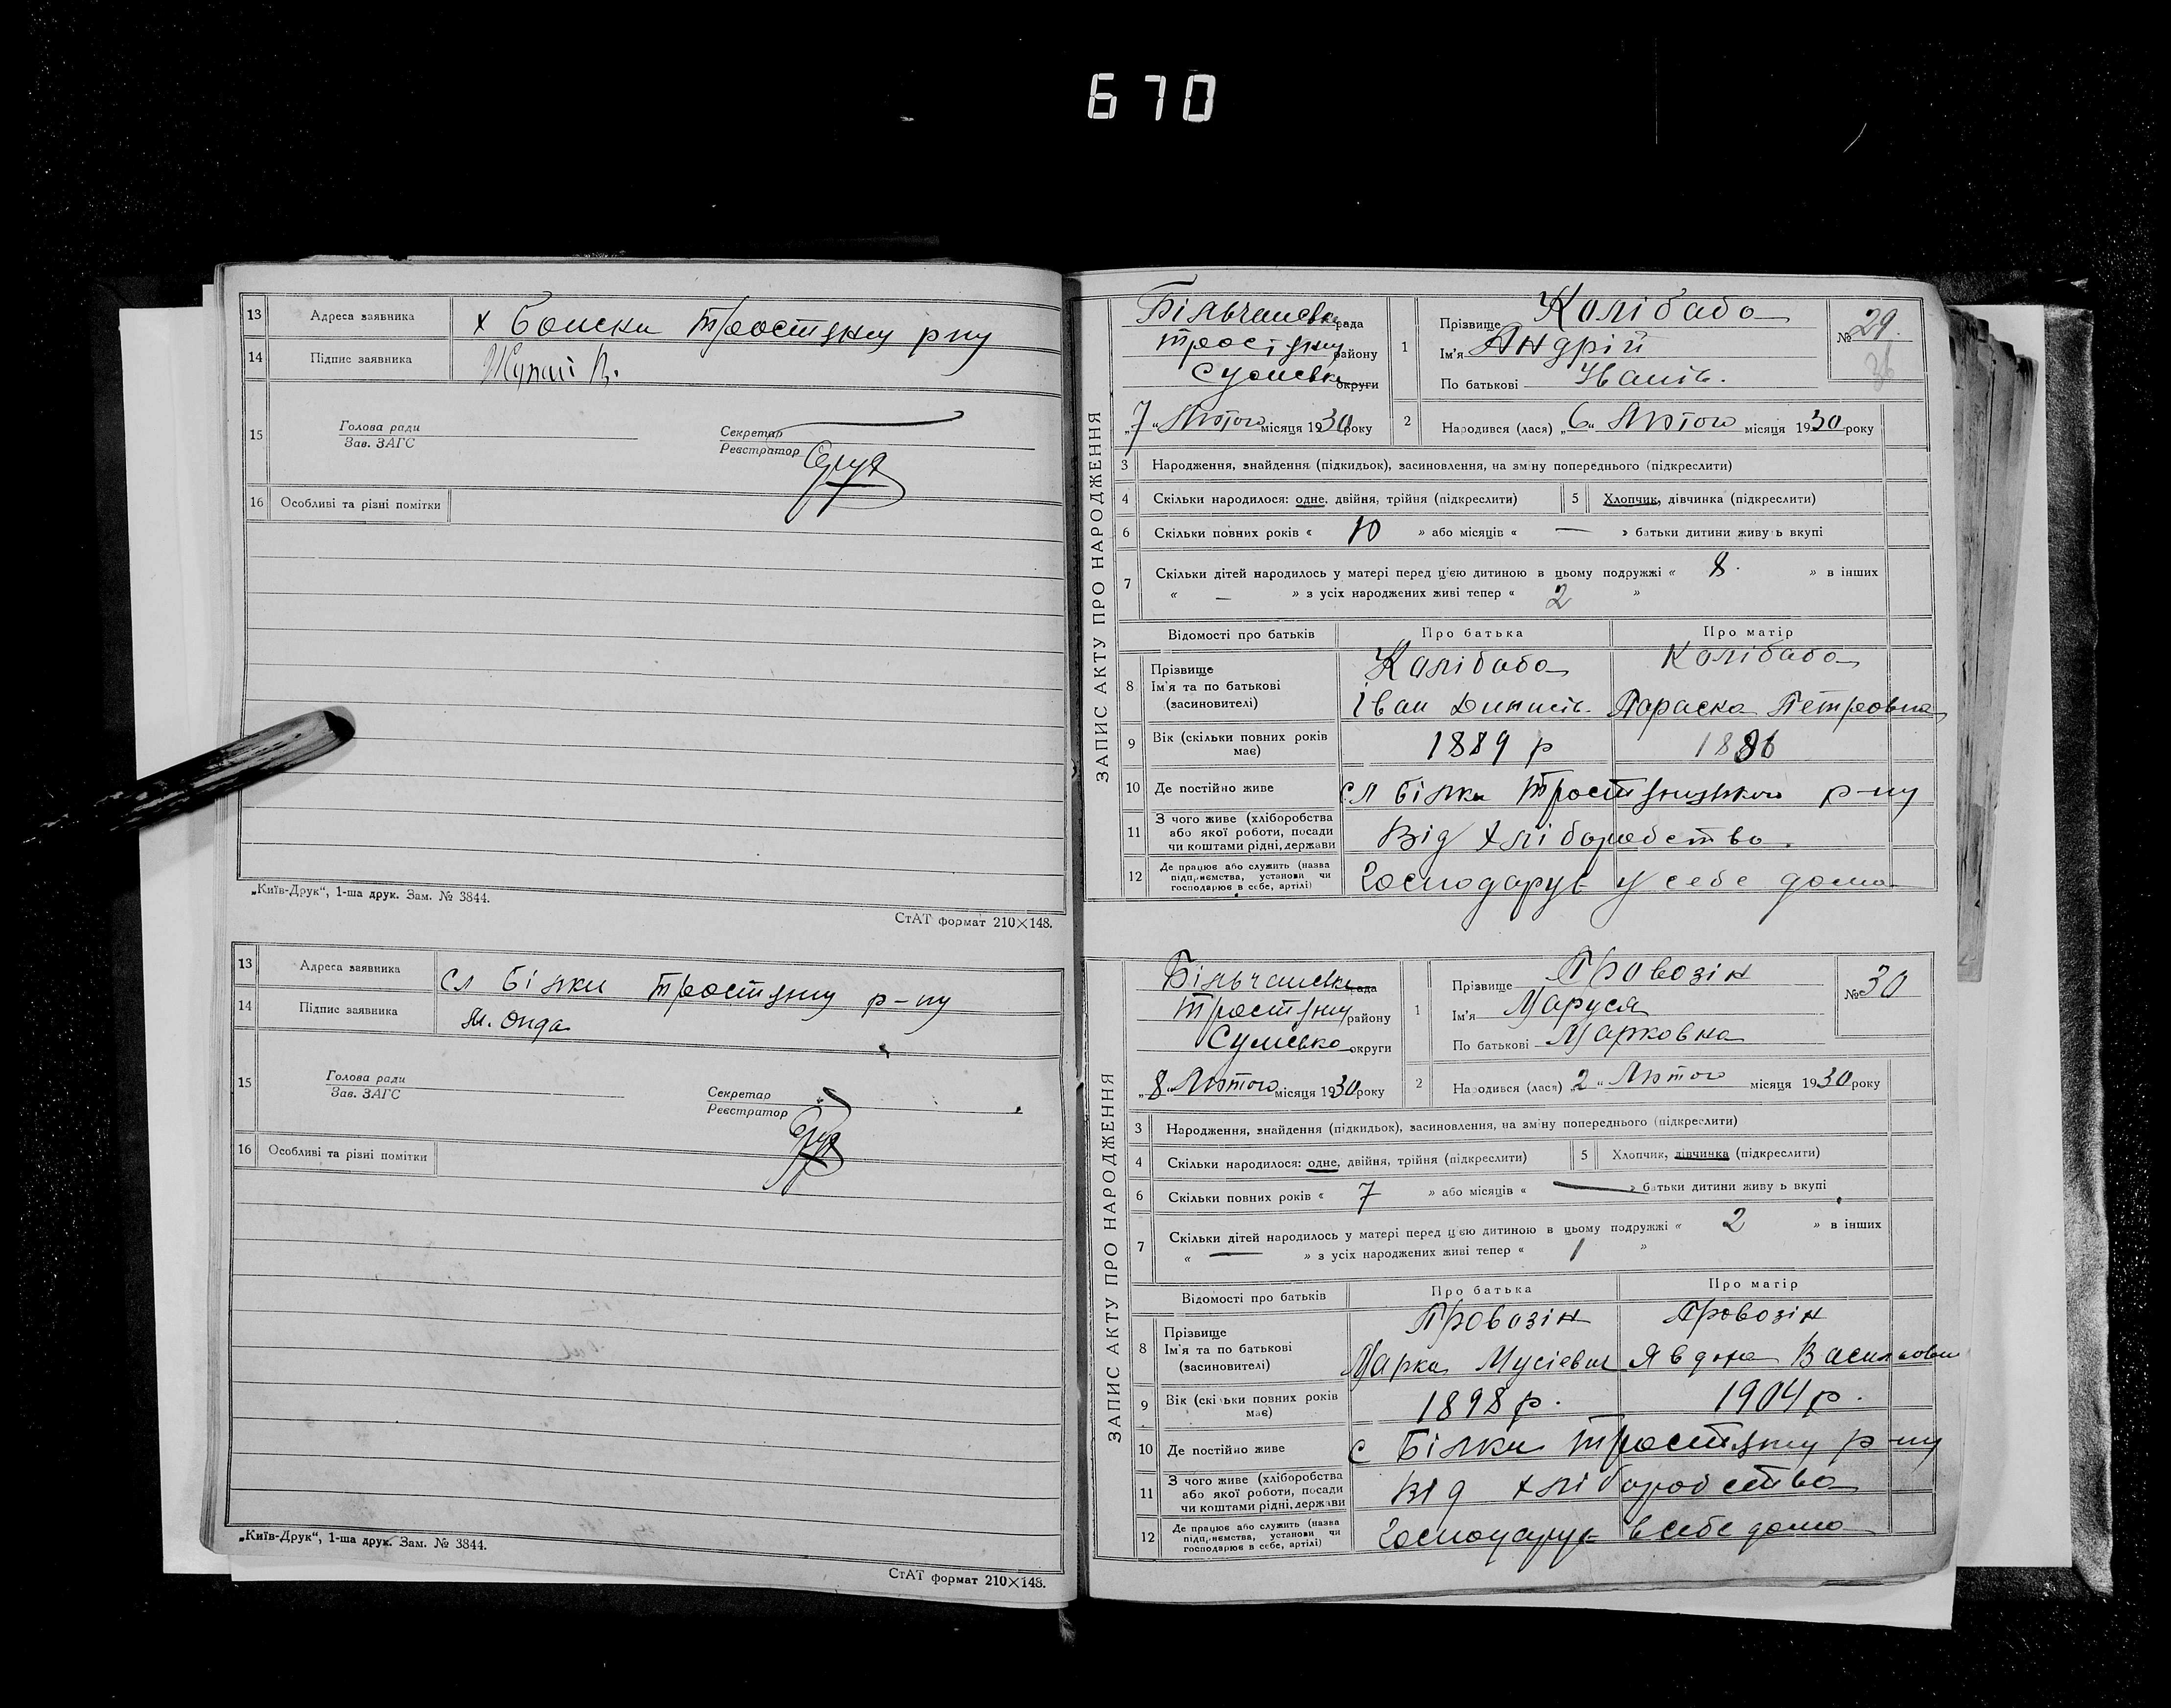 670
13 Адреса заявника х Боиски Тростянц рну
14 Підпис заявника Жупай П.
15 Голова ради Секретар
Зав. ЗАГС Реєстратор
16 Особливі та різні помітки
„Київ-Друк“, 1-ша друк. Зам. № 3844.
СтАТ формат 210×148.
13 Адреса заявника Сл Білки Тростянц р-ну
14 Підпис заявника М. Онда
15 Голова ради Секретар
Зав. ЗАГС Реєстратор
16 Особливі та різні помітки
„Київ-Друк“, 1-ша друк. Зам. № 3844.
СтАТ формат 210×148.
ЗАПИС АКТУ ПРО НАРОДЖЕННЯ
Більчанська рада
Тростянц району
Сумська округи
„7“ Лютого місяця 1930 року
1 Прізвище Калібаба
Ім'я Андрій
По батькові Іванів.
№ 29.
36
2 Народився (лася) „6“ Лютого місяця 1930 року
3 Народження, знайдення (підкидьок), засиновлення, на зміну попереднього (підкреслити)
4 Скільки народилося: одне, двійня, трійня (підкреслити) 5 Хлопчик, дівчинка (підкреслити)
6 Скільки повних років « 10 » або місяців « — » батьки дитини живуть вкупі
7 Скільки дітей народилось у матері перед ц'єю дитиною в цьому подружжі « 8 » в інших
« — » з усіх народжених живі тепер « 2 »
Відомості про батьків Про батька Про матір
8 Прізвище Калібаба Калібаба
Ім'я та по батькові
(засиновителі) Іван Динисів. Параска Петровна
9 Вік (скільки повних років має) 1889 р 1886
10 Де постійно живе сл Білки Тростянецького р-ну
11 З чого живе (хліборобства або якої роботи, посади чи коштами рідні, держави Від хліборобства.
12 Де працює або служить (назва підприємства, установи чи господарює в себе, артілі) Господарує у себе дома
ЗАПИС АКТУ ПРО НАРОДЖЕННЯ
Більчанська рада
Тростянц району
Сумська округи
„8“ Лютого місяця 1930 року
1 Прізвище Провозін
Ім'я Маруся
По батькові Марковна
№ 30
2 Народився (лася) „2“ Лютого місяця 1930 року
3 Народження, знайдення (підкидьок), засиновлення, на зміну попереднього (підкреслити)
4 Скільки народилося: одне, двійня, трійня (підкреслити) 5 Хлопчик, дівчинка (підкреслити)
6 Скільки повних років « 7 » або місяців « — » батьки дитини живуть вкупі
7 Скільки дітей народилось у матері перед ц'єю дитиною в цьому подружжі « 2 » в інших
« — » з усіх народжених живі тепер « 1 »
Відомості про батьків Про батька Про матір
8 Прізвище Провозін Провозін
Ім'я та по батькові
(засиновителі) Марко Мусієвич Явдоха Васильовн
9 Вік (скільки повних років має) 1898 р. 1904 р.
10 Де постійно живе с Білки Тростянц р-ну
11 З чого живе (хліборобства або якої роботи, посади чи коштами рідні, держави Від хліборобства
12 Де працює або служить (назва підприємства, установи чи господарює в себе, артілі) Господарує в себе дома